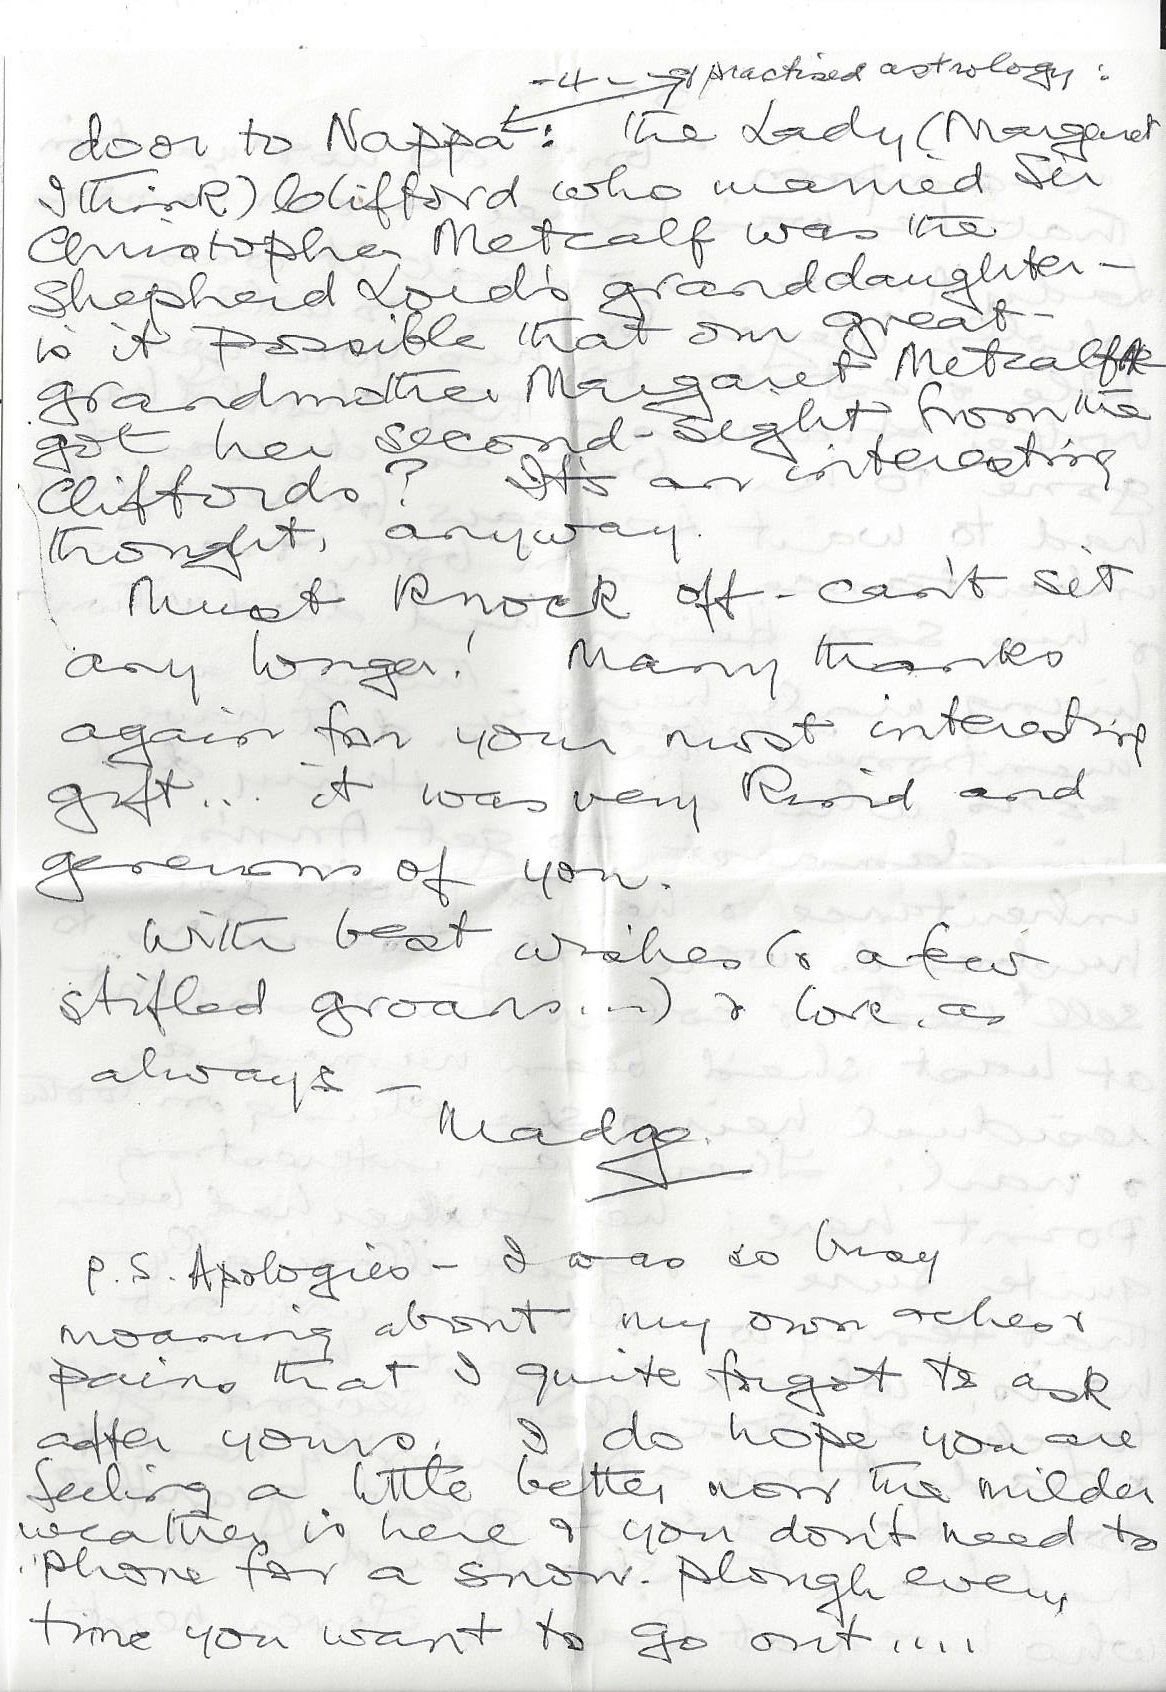 -4- & practised astrology:
door to Nappa: The Lady (Margaret
I think) Clifford who married Sir
Christopher Metcalf was the
Shepherd Lord's granddaughter -
is it possible that our great-
grandmother Margaret Metcalfe
got her second-sight from the
Cliffords? It's an interesting
thought, anyway.
Must knock off - can't sit
any longer! Many thanks
again for your most interesting
gift... it was very kind and
generous of you.
With best wishes (& a few
stifled groans...) & love, as
always -
Madge.
P.S. Apologies - I was so busy
moaning about my own aches &
pains that I quite forgot to ask
after yours. I do hope you are
feeling a little better now the milder
weather is here & you don't need to
'phone for a snow-plough every
time you want to go out....